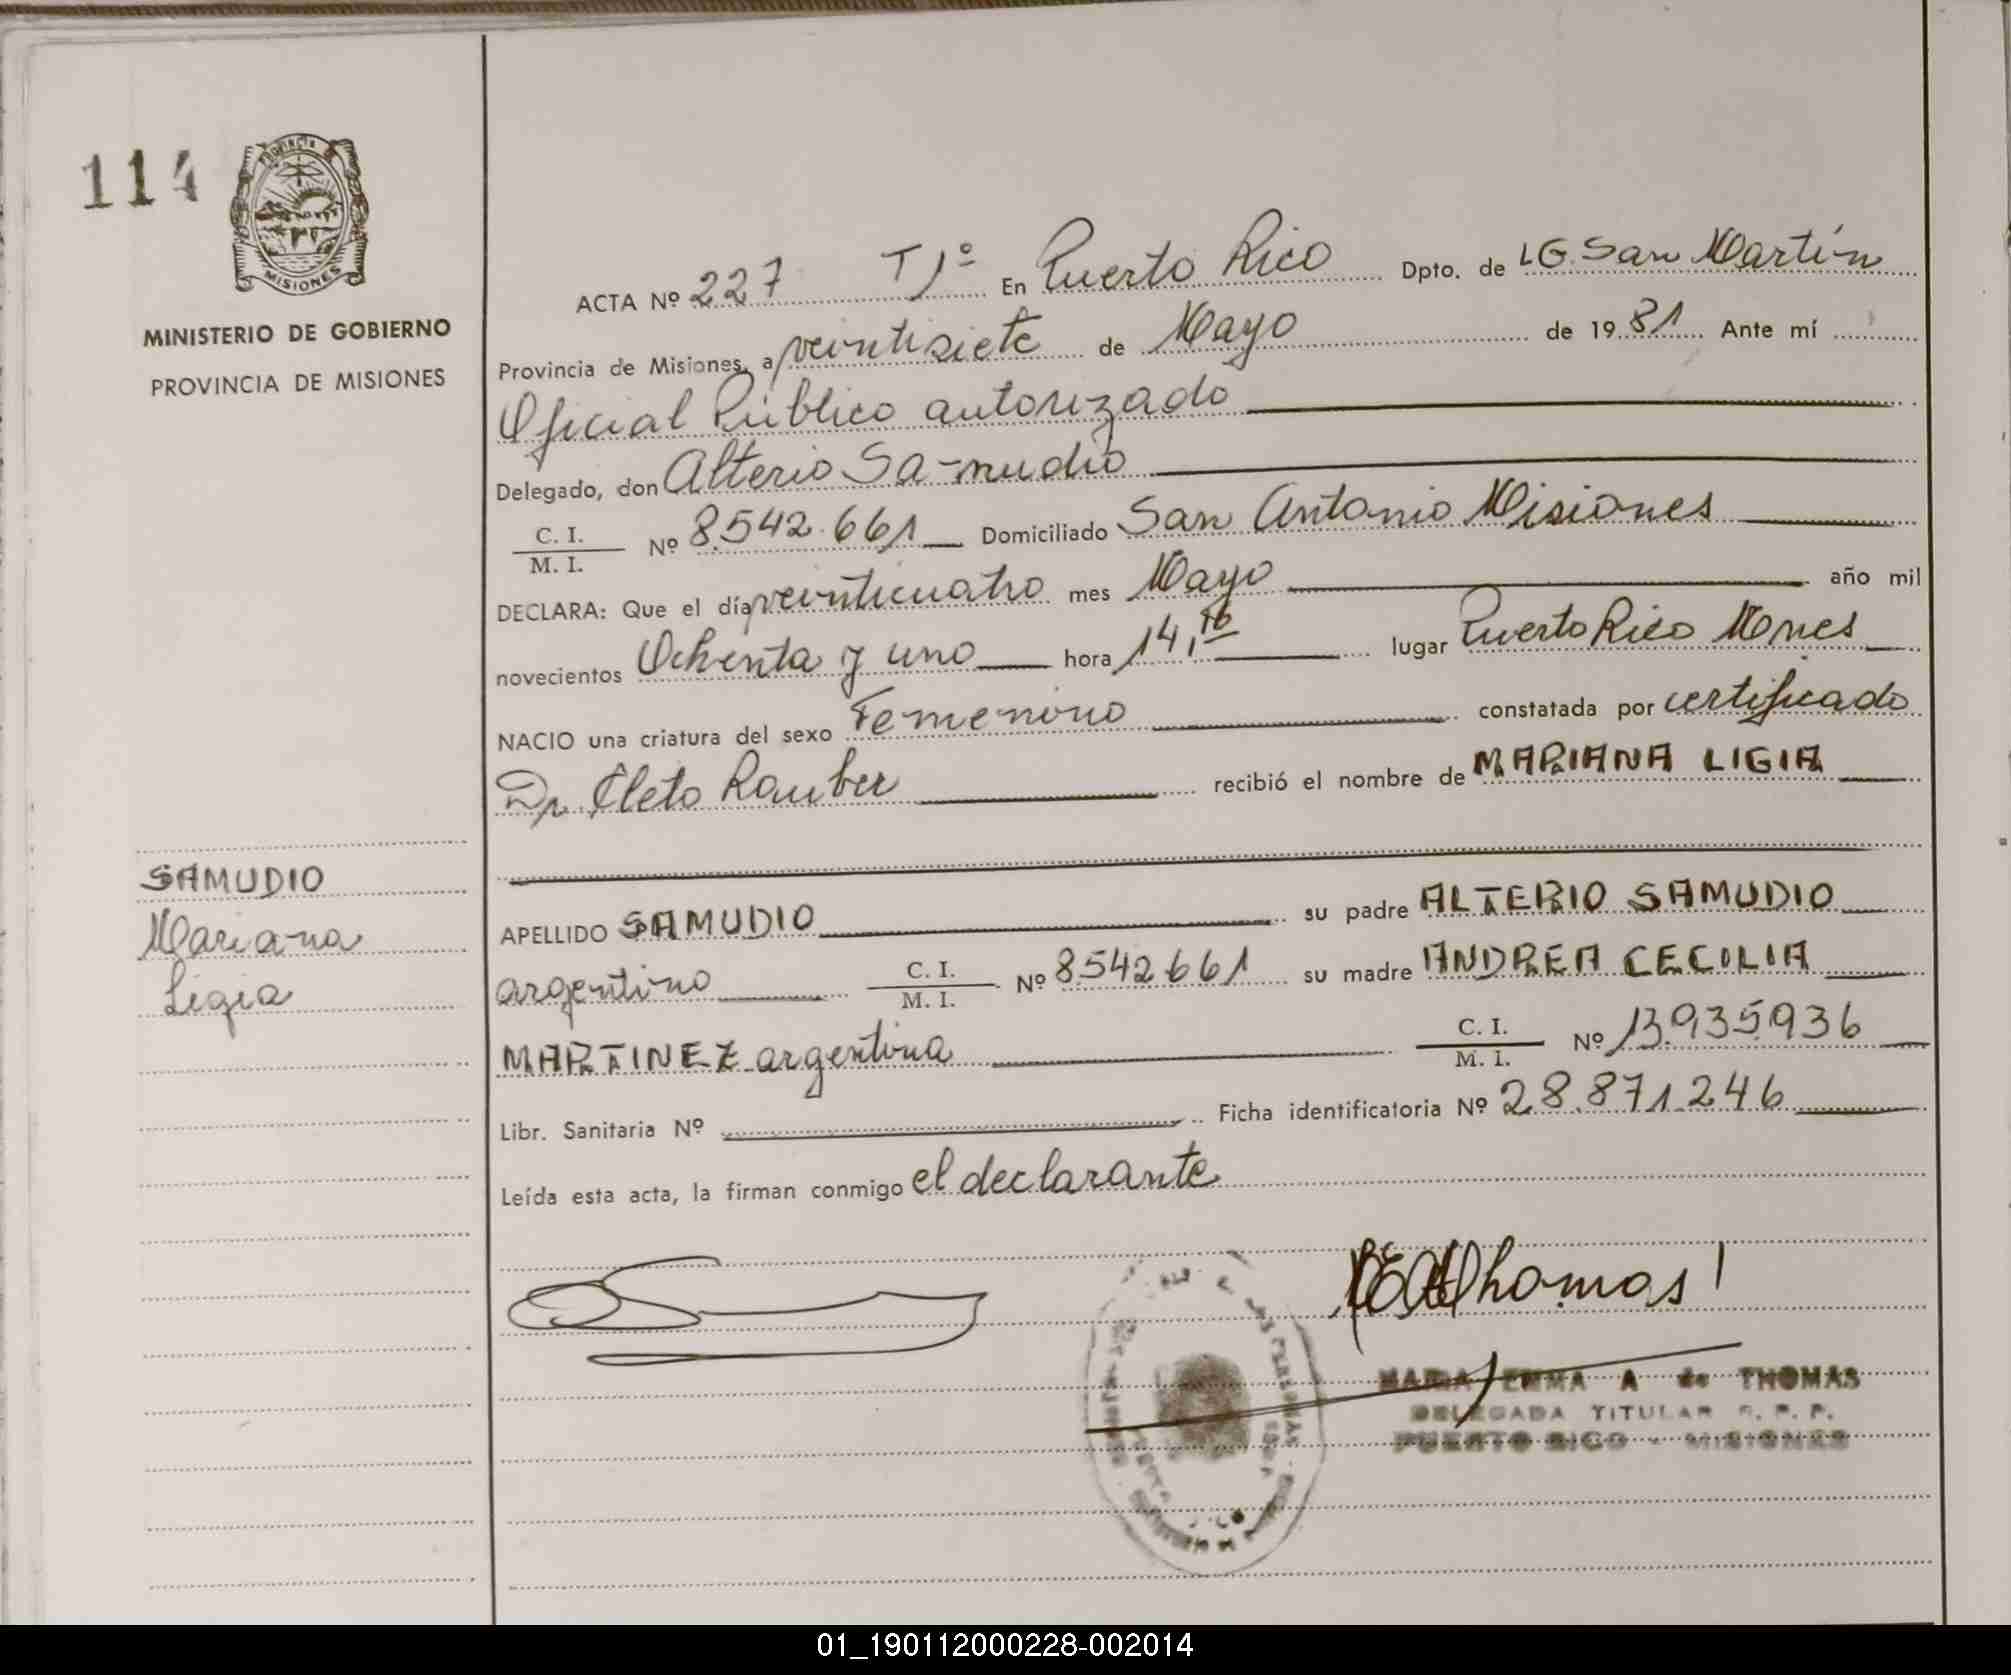 114
MINISTERIO DE GOBIERNO
PROVINCIA DE MISIONES
SAMUDIO
Mariana
Ligia
ACTA Nº 227 Tº 1º En Puerto Rico Dpto. de LG. San Martín
Provincia de Misiones, a veintisiete de Mayo de 1981 Ante mí
Oficial Público autorizado
Delegado, don Alterio Samudio
C. I. / M. I. Nº 8.542.661 Domiciliado San Antonio Misiones
DECLARA: Que el día veinticuatro mes Mayo año mil
novecientos Ochenta y uno hora 14, lugar Puerto Rico Mnes
NACIO una criatura del sexo Femenino constatada por certificado
Dr. Cleto Rauber recibió el nombre de MARIANA LIGIA
APELLIDO SAMUDIO su padre ALTERIO SAMUDIO
argentino C. I. / M. I. Nº 8.542.661 su madre ANDREA CECILIA
MARTINEZ argentina C. I. / M. I. Nº 13.935.936
Libr. Sanitaria Nº Ficha identificatoria Nº 28.871.246
Leída esta acta, la firman conmigo el declarante
Thomas
MARIA EMMA A de THOMAS
DELEGADA TITULAR R. P. P.
PUERTO RICO - MISIONES
01_190112000228-002014